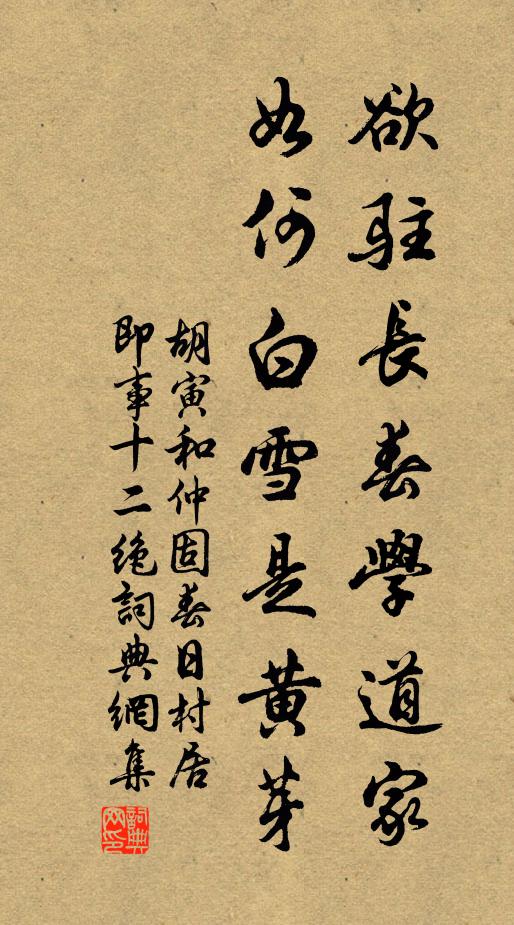 欲駐長春學道家
如何白雪是黄芽
胡寅和仲固春日村居
即事十二絶詞典網集
詞典网印